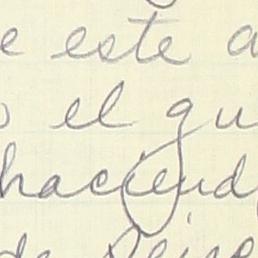 e este a
o el qu
haciend
de